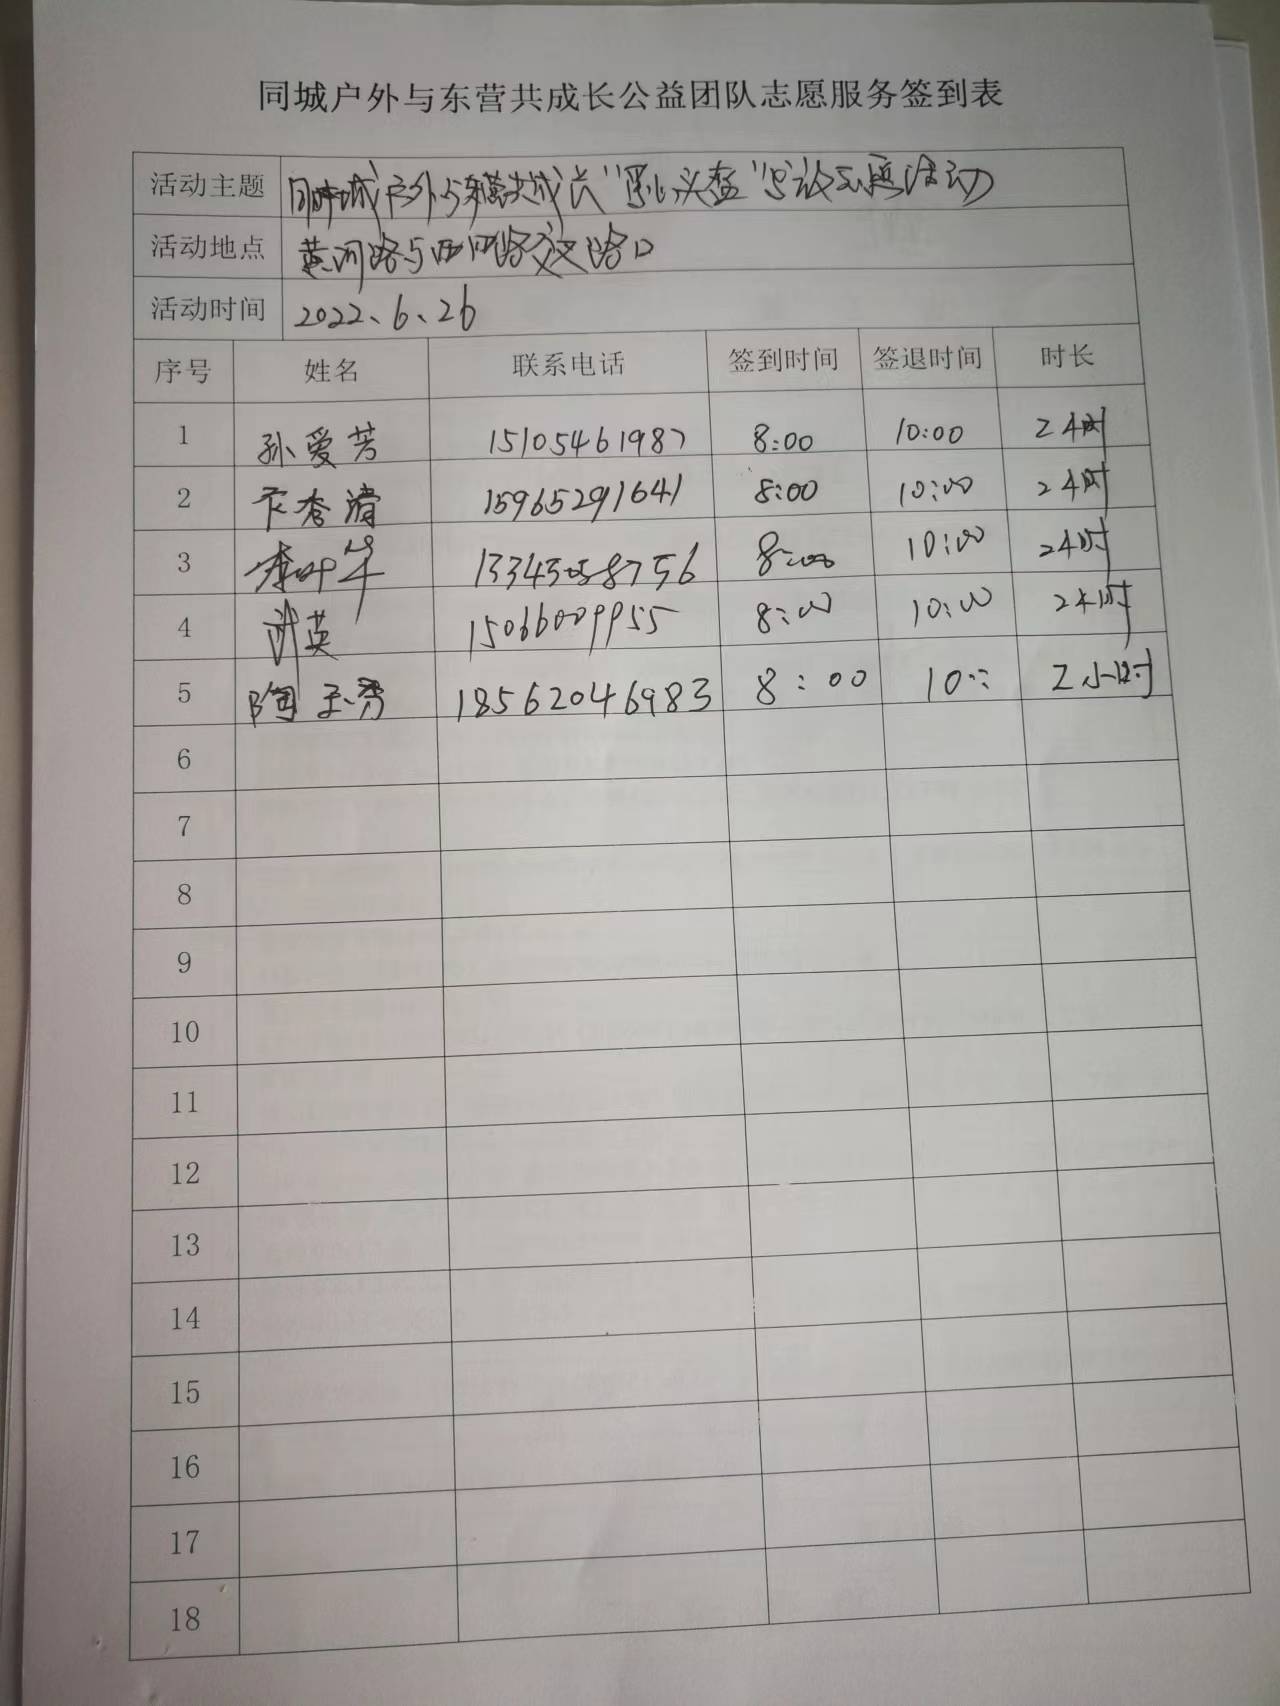 同城户外与东营共成长公益团队志愿服务签到表
活动主题 同城户外与东营共成长"头盔"志愿活动
活动地点 黄河路与西四路交叉路口
活动时间 2022、6、26
序号 姓名 联系电话 签到时间 签退时间 时长
1 孙爱芳 15105461987 8:00 10:00 2小时
2 卞秀清 15965291641 8:00 10:00 2小时
3 8:00 10:00 2小时
4 武英 15066009955 8:00 10:00 2小时
5 陶玉秀 18562046983 8:00 10:: 2小时
6
7
8
9
10
11
12
13
14
15
16
17
18